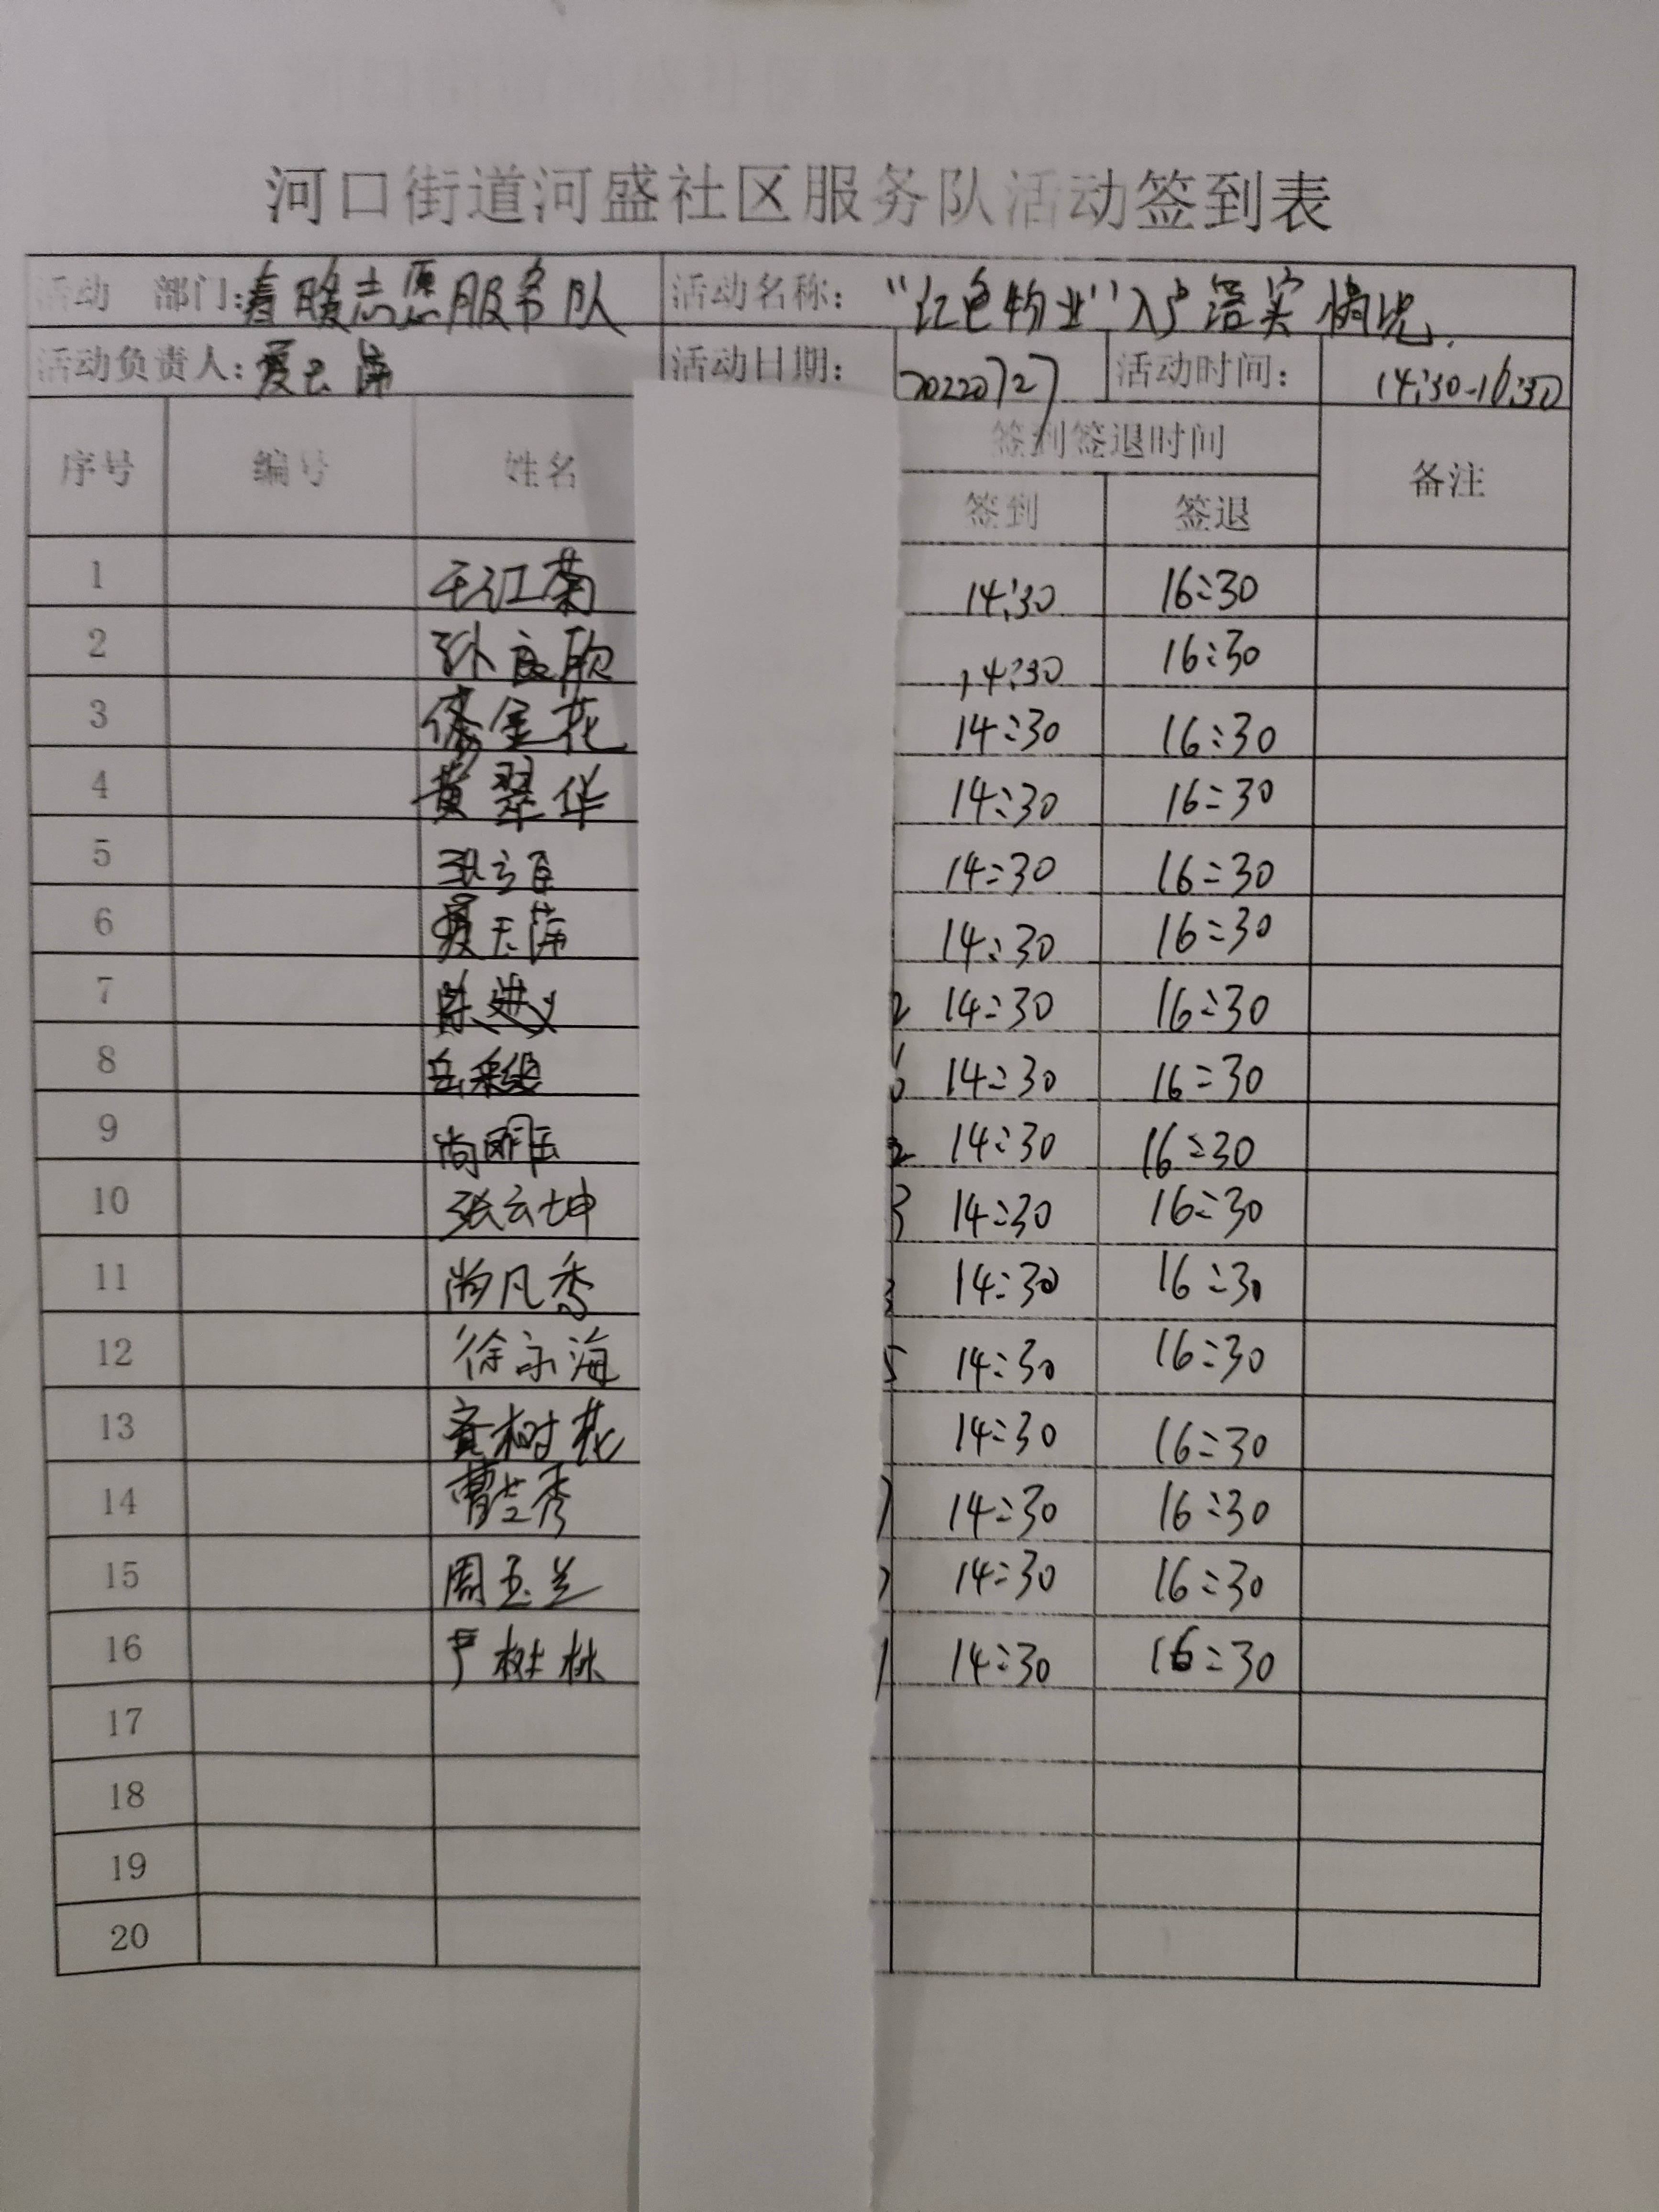 河口街道河盛社区服务队活动签到表
活动 部门：春暖志愿服务队 活动名称："红色物业"入户落实情况.
活动负责人：夏玉萍 活动日期： 20220727 活动时间： 14:30-16:30
序号 编号 姓名 签到签退时间 备注
签到 签退
1 王江菊 14:30 16:30
2 孙良欣 14:30 16:30
3 徐金花 14:30 16:30
4 黄翠华 14:30 16:30
5 14:30 16:30
6 夏玉萍 14:30 16:30
7 陈进义 2 14:30 16:30
8 14:30 16:30
9 尚明玉 2 14:30 16:30
10 张云坤 3 14:30 16:30
11 尚凡香 3 14:30 16:30
12 徐宗海 5 14:30 16:30
13 齐树花 14:30 16:30
14 曹兰秀 14:30 16:30
15 周玉兰 14:30 16:30
16 严树林 14:30 16:30
17
18
19
20